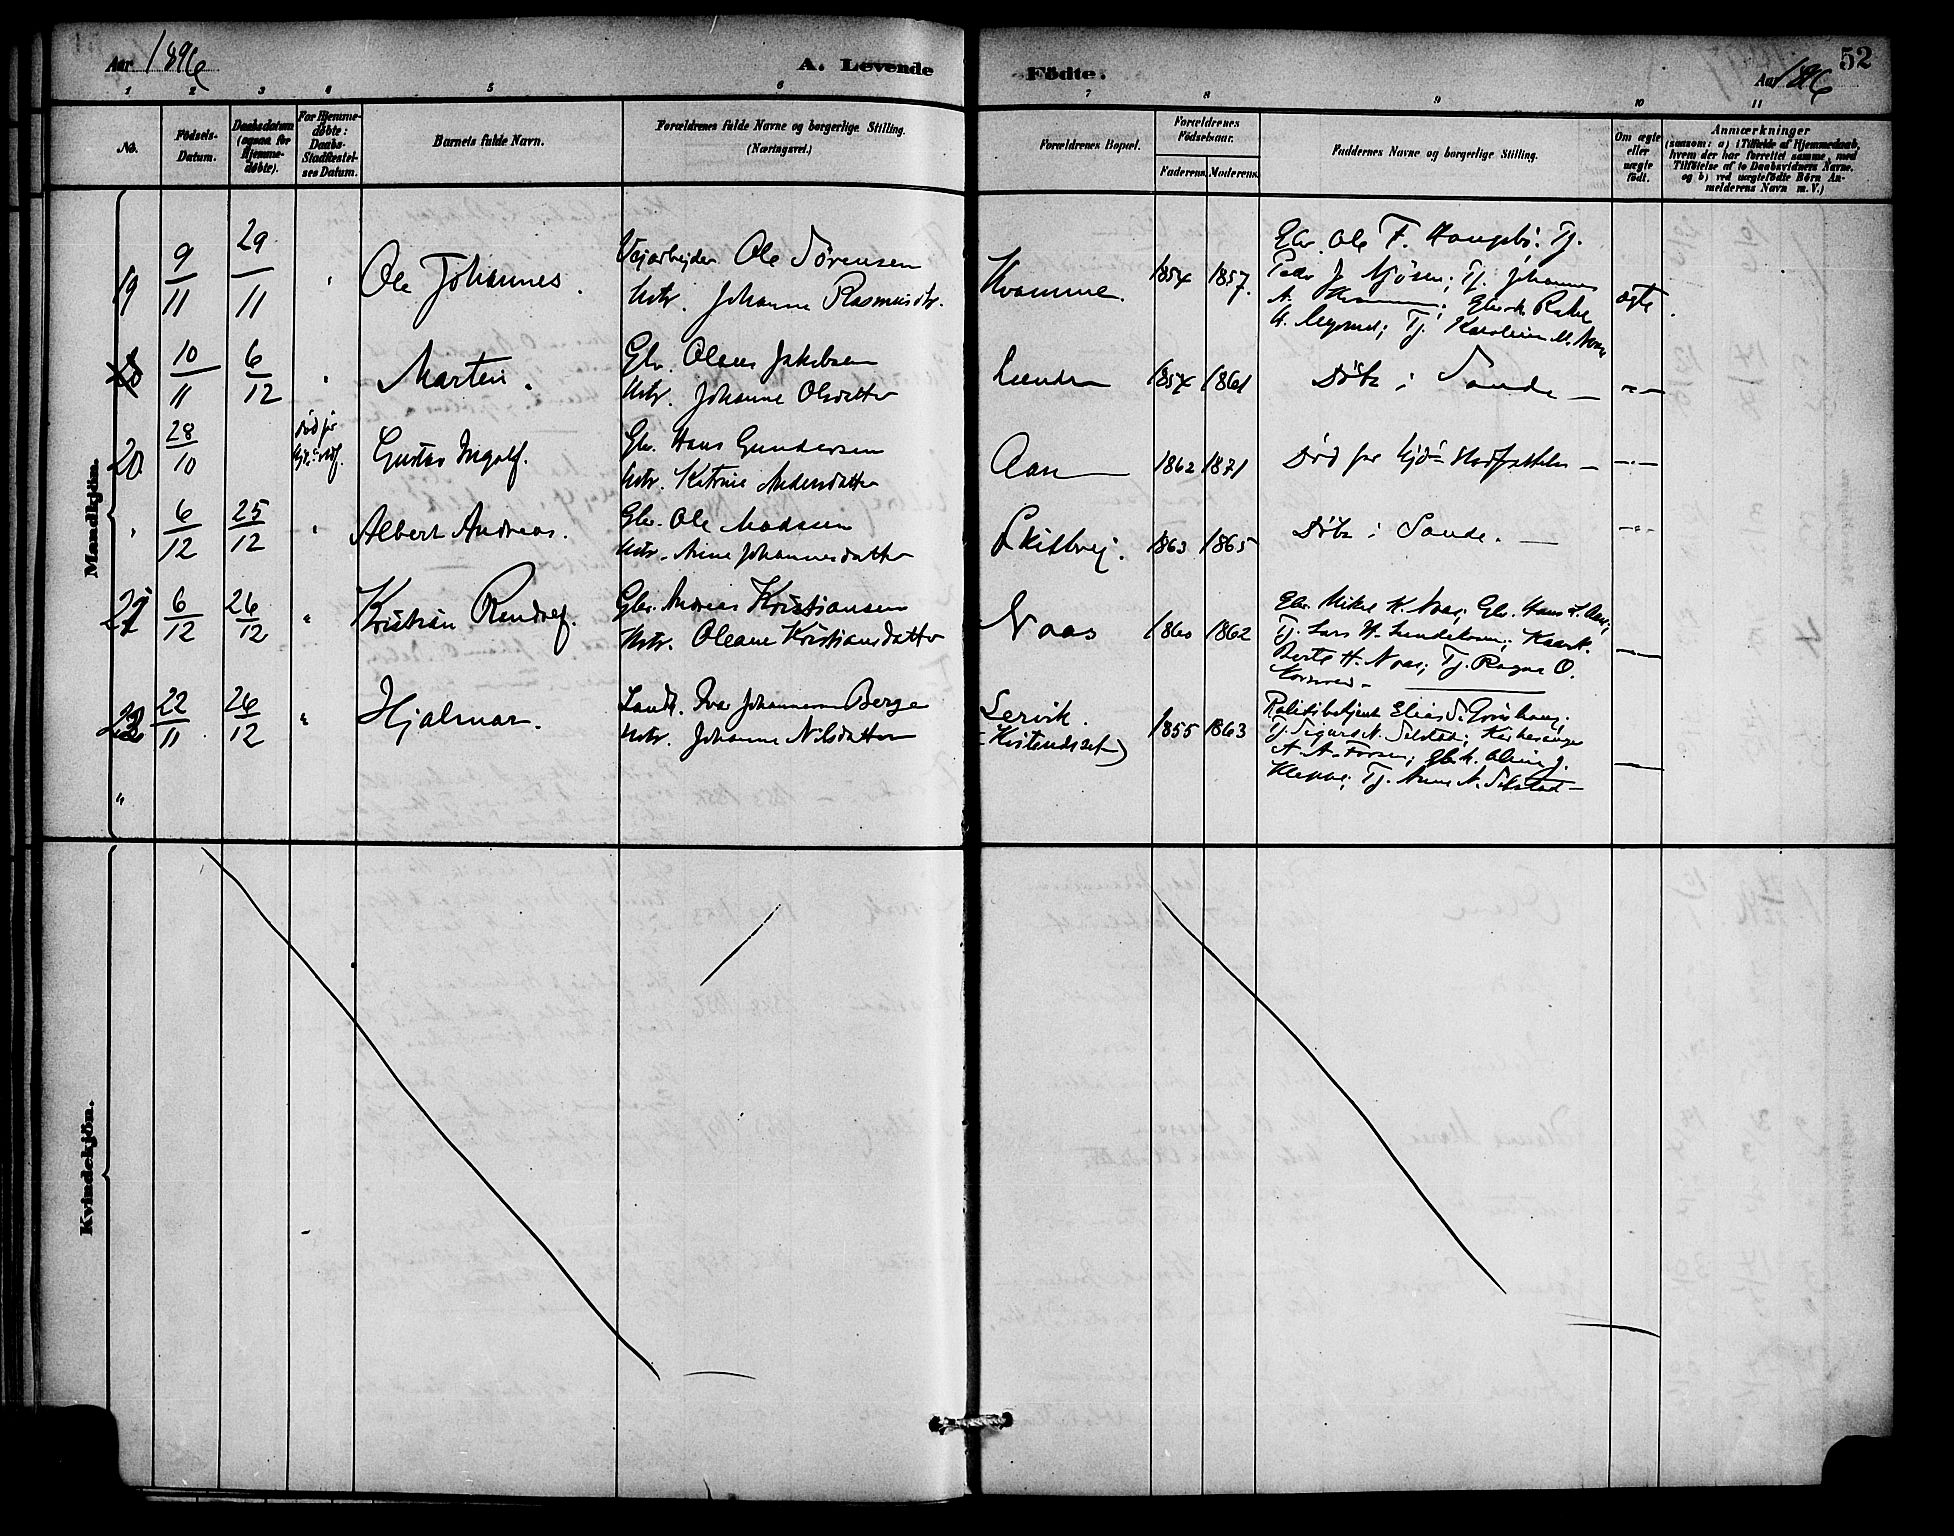 Aar 1896
A. Levende
Födte.
52
Aar 1896
1 2 3 4 5 6 7 8 9 10 11
No.
Födsels-
Datum.
Daabsdatum
(ogsaa for
Hjemme-
døbte).
For Hjemme-
døbte:
Daabs-
Stadfæstel-
ses Datum.
Barnets fulde Navn.
Forældrenes fulde Navne og borgerlige Stilling.
(Næringsvei.)
Forældrenes Bopæl.
Forældrenes
Födselsaar.
Faderens. Moderens.
Faddernes Navne og borgerlige Stilling.
Om ægte
eller
uægte
født.
Anmærkninger
(saasom: a) i Tilfælde af Hjemmedaab,
hvem der har forrettet samme, med
Tilföielse af to Daabsvidners Navne,
og b) ved uægtefödte Börn An-
melderens Navn m. V.)
Mandkjön.
19 9/11 29/11 " Ole Johannes.
Vejarbejder Ole Sørensen
Hstr. Johanne Rasmusdtr.
Kvamme. 1854 1857.
Gbr. Ole F. Haugsbö; Tj.
Peder J. ; Tj. Johannes
A. ; Rakel
A. ; Tj. M.
ægte.
10/11 6/12 " Martin.
Gbr. Olaus Jakobsen
Hstr. Johanne Olsdatter
1854 1861
Döbt i Sande —
— " —
20 28/10 Død før
Gustav Ingolf.
Gbr. Hans Gundersen
Hstr. Katrine Andersdatter
Aan 1862 1871
Död før Stadfæstelse —
— " —
" 6/12 25/12 " Albert Andreas.
Gbr. Ole Madssen
Hstr. Anne Johannesdatter
Skilbrej. 1863 1865
Döbt i Sande. —
— " —
21 6/12 26/12 " Kristian Rendolf.
Gbr. Andreas Kristiansen
Hstr. Oleane Kristiansdatter
Naas 1860 1862
Gbr. Mikal K. Naas; Gbr. Hans L. Aan;
Tj. Lars H. ;
Berte H. Naas; Tj. Ragna O.
—
22 22/11 26/12 " Hjalmar.
Landh. Ivar Johannessen Berge
Hstr. Johanne Nilsdatter
Lervik.
1855 1863
Politibetjent Elias S. ;
Tj. Sigurd N. Selstad; Kirkesanger
A. A. ; Oline J.
Kleppe; Tj. Anne N. Selstad —
—
"
Kvindekjön.